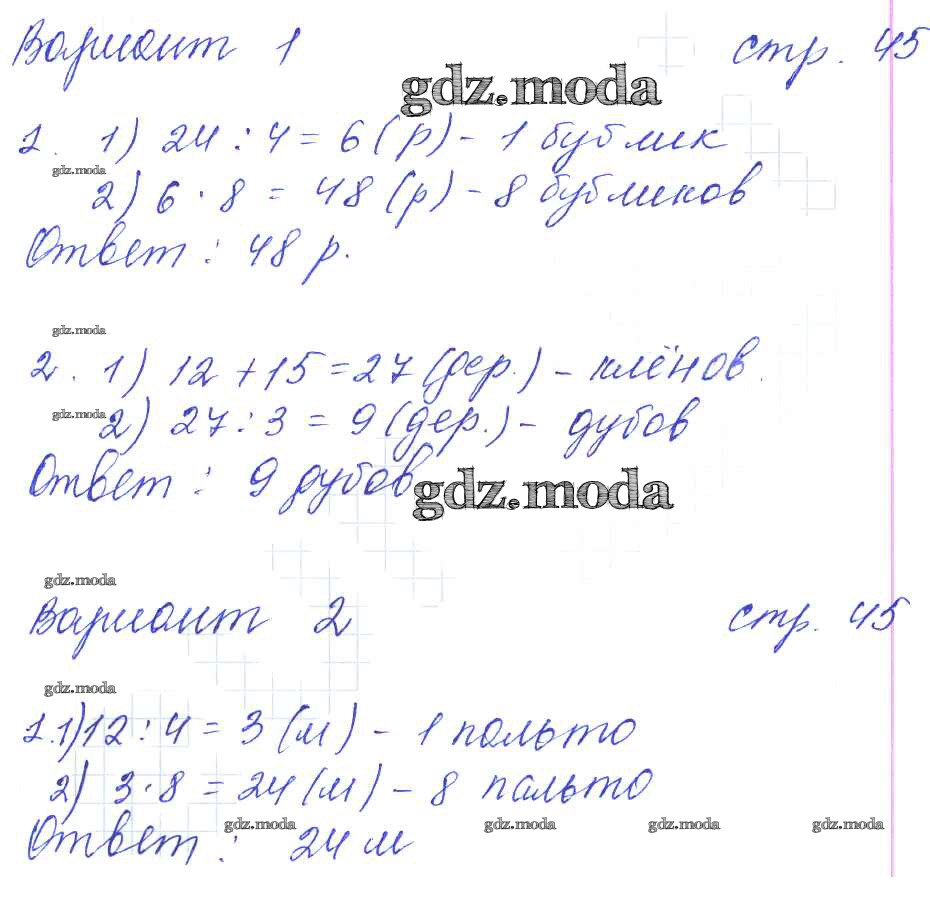 Вариант 1 стр. 45
gdz.moda
1. 1) 24 : 4 = 6 (р) - 1 бублик
gdz.moda
2) 6 · 8 = 48 (р) - 8 бубликов
Ответ : 48 р.
gdz.moda
2. 1) 12 + 15 = 27 (дер.) - клёнов.
gdz.moda
2) 27 : 3 = 9 (дер.) - дубов
Ответ : 9 дубов
gdz.moda
gdz.moda
Вариант 2 стр. 45
gdz.moda
1. 1) 12 : 4 = 3 (м) - 1 пальто
2) 3 · 8 = 24 (м) - 8 пальто
gdz.moda gdz.moda gdz.moda gdz.moda
Ответ : 24 м